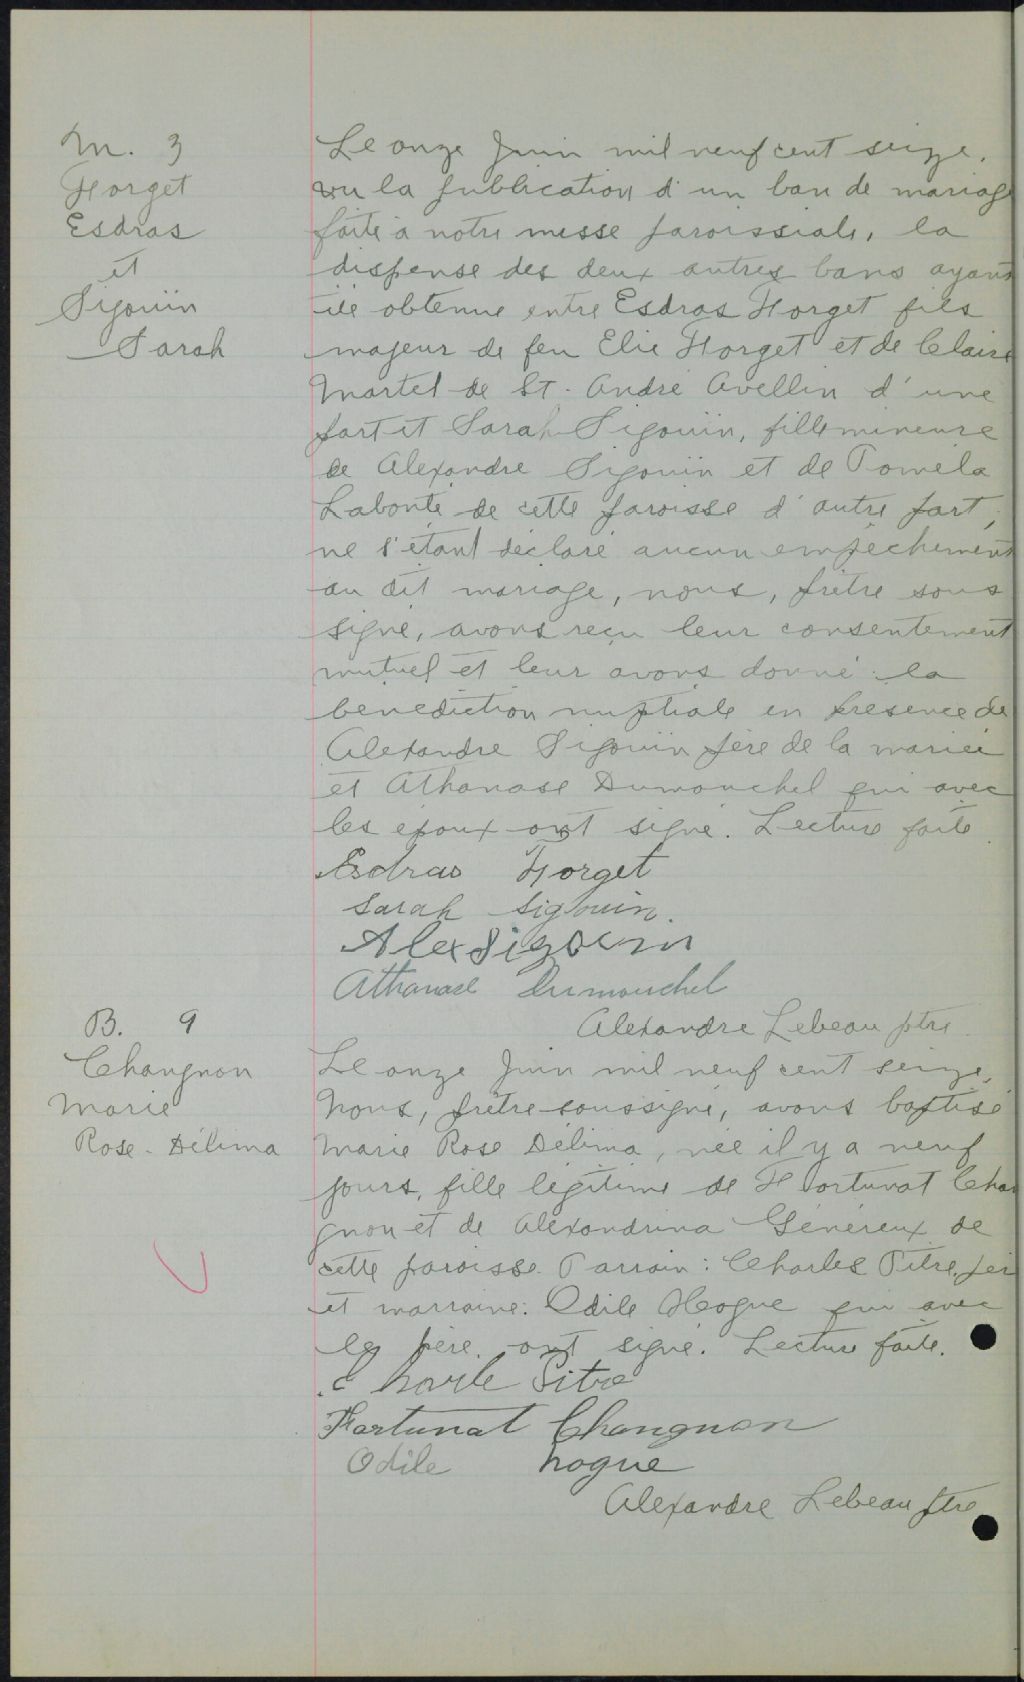 M. 3
Forget
Esdras
et
Sigouin
Sarah
Le onze Juin mil neuf cent seize,
vu la publication d'un ban de mariage
faite à notre messe paroissiale, la
dispense des deux autres bans ayant
été obtenue entre Esdras Forget fils
majeur de feu Elie Forget et de Claire
Martel de St. André Avellin d'une
part et Sarah Sigouin, fille mineure
de Alexandre Sigouin et de Poméla
Labonté de cette paroisse d'autre part,
ne s'étant déclaré aucun empêchement
au dit mariage, nous, prêtre sous
signé, avons reçu leur consentement
mutuel et leur avons donné la
bénédiction nuptiale en présence de
Alexandre Sigouin père de la mariée
et Athanase Dumouchel qui avec
les époux ont signé. Lecture faite
Esdras Forget
Sarah Sigouin.
Alex Sigouin
Athanase Dumouchel
Alexandre Lebeau ptre
B. 9
Changnon
Marie
Rose-Délima
Le onze Juin mil neuf cent seize,
Nous, prêtre soussigné, avons baptisé
Marie Rose Délima, née il y a neuf
jours, fille légitime de Fortunat Chan
gnon et de Alexandrina Généreux de
cette paroisse. Parrain: Charles Pitre,
et marraine: Odile Hogue qui avec
le père ont signé. Lecture faite.
Charle Pitre
Fortunat Changnon
Odile hogue
Alexandre Lebeau ptre